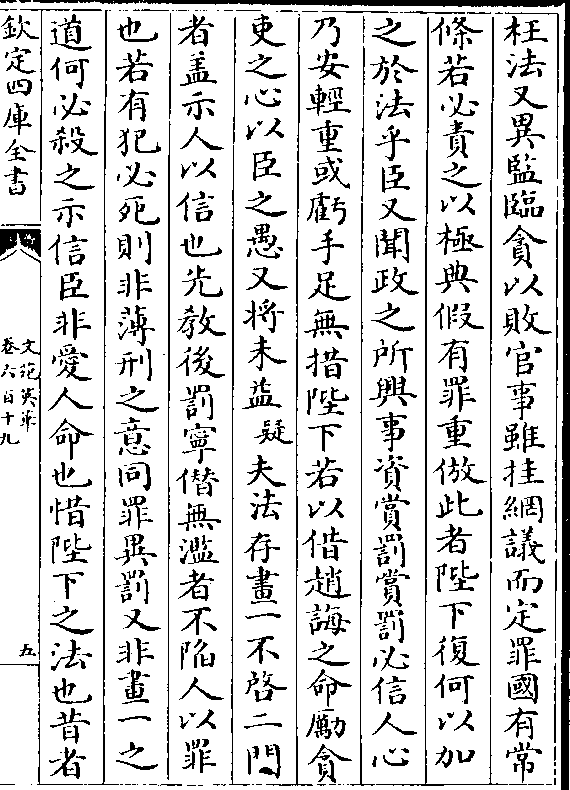 枉法又異監臨貪以敗官事雖挂網議而定罪國有常
條若必責之以極典假有罪重倣此者陛下復何以加
之於法乎臣又聞政之所興事資賞罰賞罰必信人心
乃安輕重或虧手足無措陛下若以借趙誨之命勵貪
吏之心以臣之愚又將未益疑夫法存畫一不啓二門
者盖示人以信也先教後罰寧僭無濫者不陷人以罪
也若有犯必死則非薄刑之意同罪異罰又非畫一之
道何必殺之示信臣非愛人命也惜陛下之法也昔者
欽定四庫全書
文苑英華
卷六百十九
五